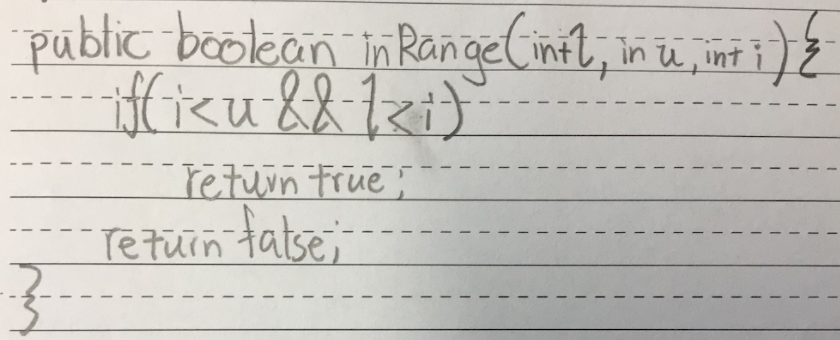 public boolean inRange(int l, in u, int i) {
if(i<u && l<i)
return true;
return false;
}